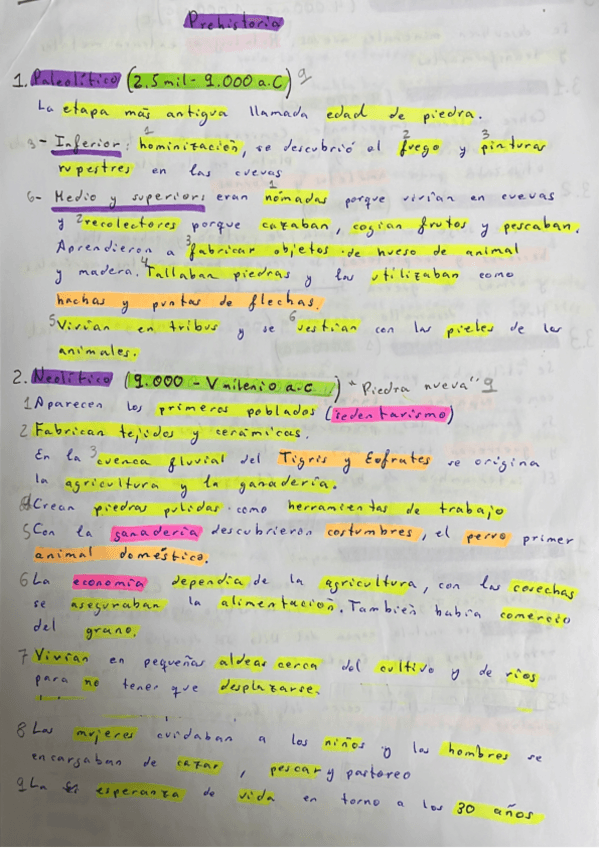 Prehistoria
1. Paleolítico (2.5mil - 9.000 a.C) 9
La etapa más antigua llamada edad de piedra.
3 - Inferior: 1 hominización, se descubrió el 2 fuego y 3 pinturas
rupestres en las cuevas
6 - Medio y superior: eran 1 nómadas porque vivían en cuevas
y 2 recolectores porque cazaban, cogían frutos y pescaban.
Aprendieron a 3 fabricar objetos de hueso de animal
y madera. 4 Tallaban piedras y las utilizaban como
hachas y puntas de flechas.
5 Vivían en tribus y se 6 vestían con las pieles de los
animales.
2. Neolítico (9.000 - V milenio a.C) "Piedra nueva" 9
1 Aparecen los primeros poblados (sedentarismo)
2 Fabrican tejidos y cerámicas.
En la 3 cuenca fluvial del Tigris y Eofrates se origina
la agricultura y la ganadería.
4 Crean piedras pulidas como herramientas de trabajo
5 Con la ganadería descubrieron costumbres, el perro primer
animal doméstico.
6 La economía dependía de la agricultura, con las cosechas
se aseguraban la alimentación. También había comercio
del grano.
7 Vivían en pequeñas aldeas cerca del cultivo y de ríos
para no tener que desplazarse.
8 Las mujeres cuidaban a los niños y los hombres se
encargaban de cazar, pescar y pastoreo
9 La esperanza de vida en torno a los 30 años